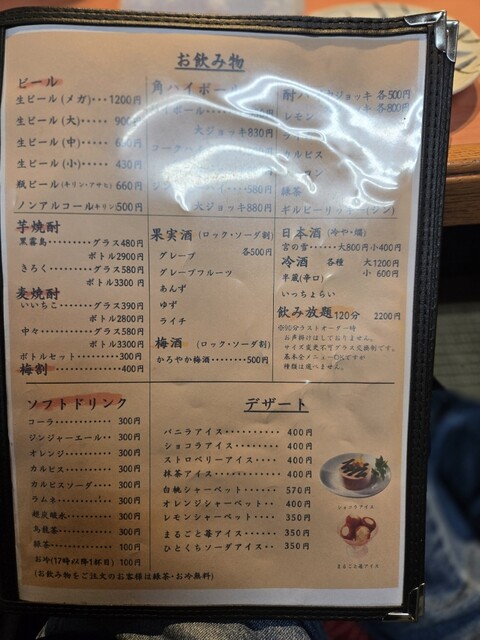 お飲み物
ビール
生ビール(メガ)・・・1200円
生ビール(大)・・・・900円
生ビール(中)・・・・
生ビール(小)・・・・430円
瓶ビール(キリン・アサヒ) 660円
ノンアルコール(キリン)500円
角ハイボール
大ジョッキ830円
580円
大ジョッキ880円
酎
ジョッキ 各500円
各800円
レモン
カルピス
緑茶
ギルビーリッキー(ジン)
芋焼酎
黒霧島・・・・・・・・・グラス480円
ボトル2900円
きろく・・・・・・・・・グラス580円
ボトル3300円
麦焼酎
いいちこ・・・・・・・グラス390円
ボトル2800円
中々・・・・・・・・・グラス580円
ボトル3300円
ボトルセット・・・・・・・300円
梅割・・・・・・・・・・・400円
果実酒 (ロック・ソーダ割)
各500円
グレープ
グレープフルーツ
あんず
ゆず
ライチ
梅酒 (ロック・ソーダ割)
かろやか梅酒・・・・・・500円
日本酒(冷や・燗)
宮の雪・・・・・大800円小400円
冷酒 各種 大1200円
小 600円
半蔵(辛口)
いっちょらい
飲み放題120分 2200円
※90分ラストオーダー時
お声掛けはしておりません。
サイズ変更不可グラス交換制です。
基本全メニューOKですが
種類は選べません。
ソフトドリンク
コーラ・・・・・・・・・300円
ジンジャーエール・・300円
オレンジ・・・・・・・・300円
カルピス・・・・・・・・300円
カルピスソーダ・・・・300円
ラムネ・・・・・・・・・300円
超炭酸水・・・・・・・・300円
烏龍茶・・・・・・・・・300円
緑茶・・・・・・・・・・100円
お冷(17時以降1杯目) 100円
(お飲み物をご注文のお客様は緑茶・お冷無料)
デザート
バニラアイス・・・・・・・・・400円
ショコラアイス・・・・・・・・400円
ストロベリーアイス・・・・・400円
抹茶アイス・・・・・・・・・・400円
白桃シャーベット・・・・・・570円
オレンジシャーベット・・・400円
レモンシャーベット・・・・350円
まるごと苺アイス・・・・・350円
ひとくちソーダアイス・・・350円
ショコラアイス
まるごと苺アイス